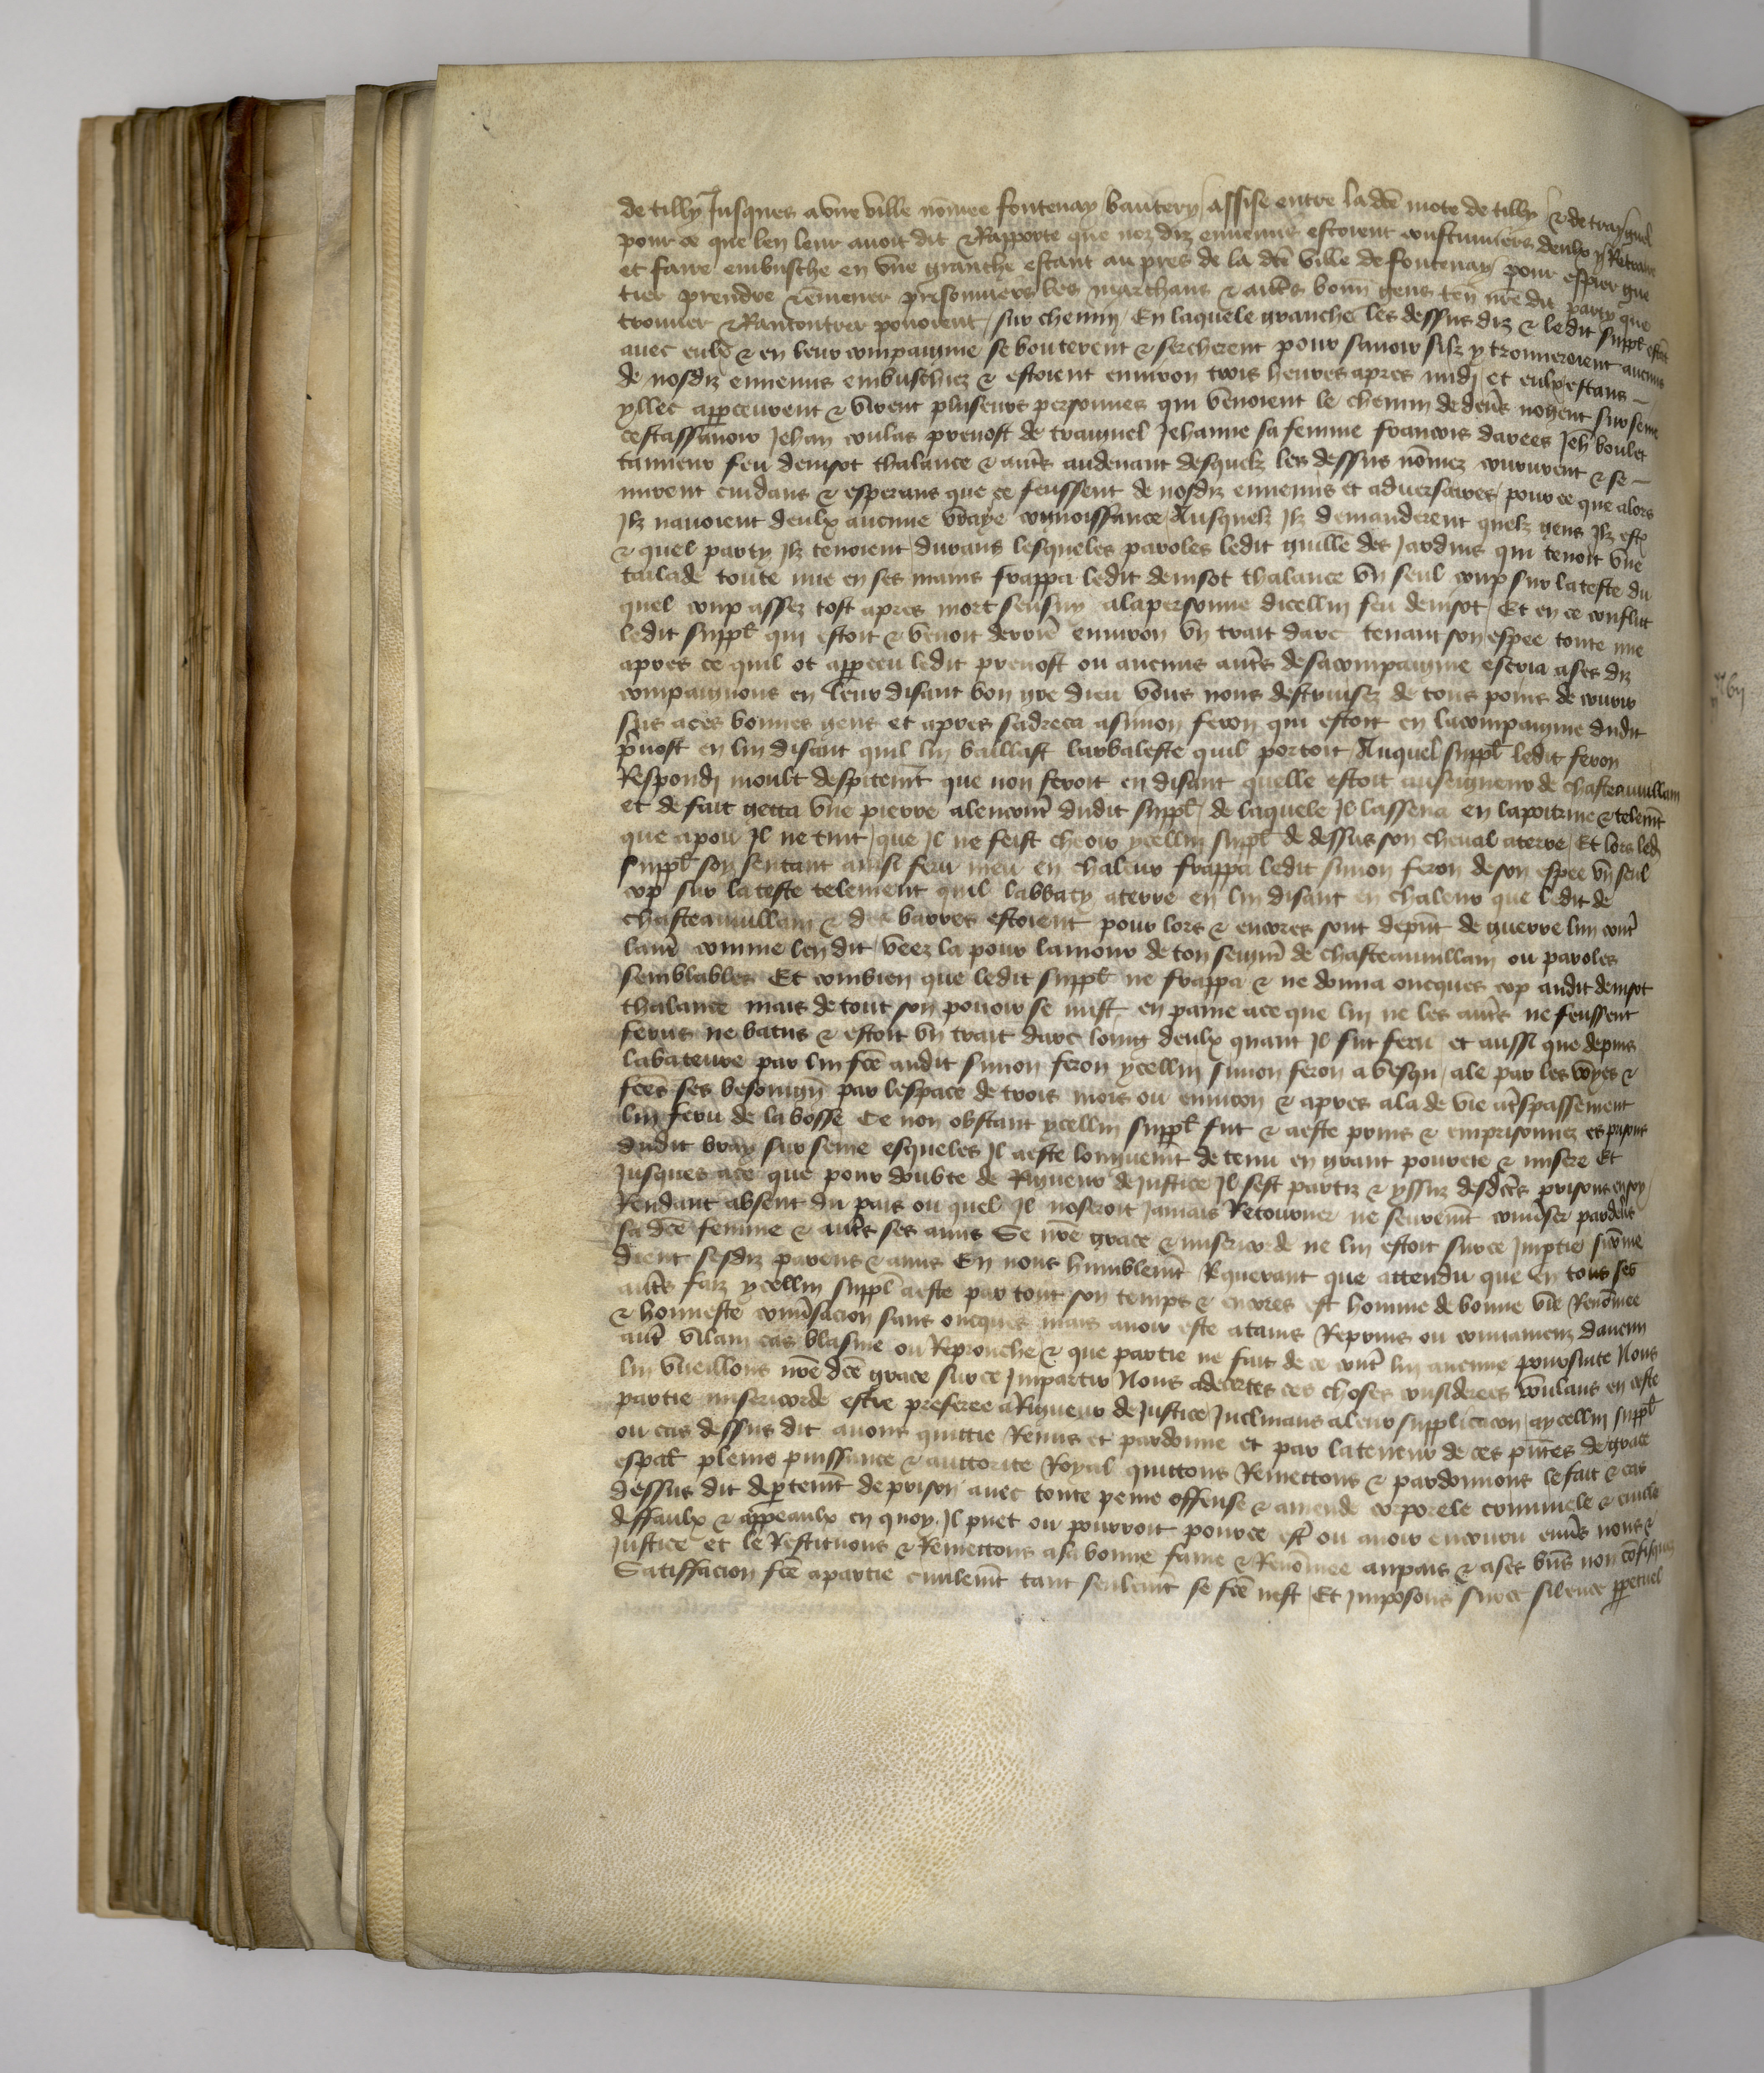 de tilly Jusques a vne ville nōmee fontenay bautery / assise entre la dcē mote de tilly / & de traynel
pour ce que len leur auoit dit & Rapporte que noz diz ennemis estoient coustumiers deulx y Retraire
et faire embusche en vne granche estant au pres de la dcē ville de fontenay / pour espier gue
tier prendre & emener prisonniers les marchans & autrēs bonn gens ten nrē dit party que
trouuer & Rancontrer pouoient / sur chemin / En laquele granche les dessus diz & ledit suppl estāt
auec eulx & en leur compaignie se bouterent & sercherent pour sauoir silz y trouueroient aucuns
de nosdiz ennemis embuschiez & estoient enuiron trois heures apres midj / et eulx estans
yllec apperceurent & virent pluseurs personnes qui venoient le chemin de deūs nogent sur seine
cestassauoir Jehan coulas preuost de trainel Jehanne sa femme francois darees Jeh boulet
tanneur feu denisot thalance & autrēs audeuant desquelz les dessus nōmez coururent & se
mirent cuidans & esperans que ce feussent de nosdiz ennemis et aduersaires / pour ce que alors
Jlz nauoient deulx aucune vraye congnoissance / Ausquelz Jlz demanderent quelz gens Jlz est
& quel party Jlz tenoient / durans lesqueles paroles ledit guille des Jardins qui tenoit vne
tailade toute nue en ses mains frappa ledit denisot thalance vn seul coup sur la teste du
quel coup assez tost apres mort sensuy ala personne dicellui feu denisot / Et en ce conflict
ledit suppl qui estoit & venoit derriē enuiron vn trait darc tenant son espee toute nue
apres ce quil ot apperceu ledit preuost ou aucuns autrēs de sa compaignie escria a ses diz
compaignons en leur disant bon gre dieu vous nous destruisez de tous poins de courir
sus a ces bonnes gens et apres sadreca a simon feron qui estoit en la compaignie dudit
p̄uost en lui disant quil lui baillast larbaleste quil portoit / Auquel suppl ledit feron
Respondj moult despitem̄t que non feroit en disant quelle estoit au seigneur de chasteauuillain
et de fait getta vne pierre alencont̄ dudit suppl / de laquele Jl lassena en la poitrine & telem̄t
que a pou Jl ne tint / que Jl ne feist cheoir ycellui suppl de dessus son cheual a terre / Et lors led
suppl soy sentant ainsi feru meu en chaleur frappa ledit simon feron de son espee vn seul
cop sur la teste telement quil labbaty a terre en lui disant en chaleur que ledit de
chasteauuillain & des barres estoient pour lors & encores sont depn̄t de guerre lun cont̄
laut̄ comme len dit / veez la pour lamour de ton seign̄ de chasteauuillain ou paroles
semblables Et combien que ledit suppl ne frappa & ne donna oncques cop audit denisot
thalance mais de tout son pouoir se mist en paine ace que lui ne les autrēs ne feussent
ferus ne batus & estoit vn trait darc loing deulx quant Jl fut feru / et aussi que depuis
la bateure par lui fcē audit simon feron ycellui simon feron a vesqu / ale par les voyes &
fcēs ses besoingn̄ par lespace de trois mois ou enuiron & apres ala de vie a trēspassement
lui feru de la bosse Ce non obstant ycellui suppl fut & a este prins & emprisonnez es prisons
dudit bray sur seine esqueles Jl a este longuem̄t detenu en grant pourete & misere Et
Jusques a ce que pour doubte de Rigueur de Justice Jl sest partiz & yssuz desdictēs prisons en soy
Rendant absent du pais ou quel Jl noseroit Jamais Retourner ne seurem̄t conūser pardeūs
sa dcē femme & autrēs ses amis Se nrē grace & misericorde ne lui estoit sur ce Jmptie sicōme
dient sesdiz parens & amis En nous humblem̄t Requerant que attendu que en tous ses
autrēs faiz ycellui suppl a este par tout son temps & encores est homme de bonne vie Renōmee
& honneste conūsacion sans oncques mais auoir este ataint Reprins ou conuaincuz daucun
aut̄ vilain cas blasme ou Reprouche & que partie ne fait de ce cont̄ lui aucune poursuite Nous
lui vueillons nrē dcē grace sur ce Jmpartir Nous adecertes ces choses considerees voulans en ceste
partie misericorde estre preferee a Rigueur de Justice / Juclinans a leur supplicacon / a ycellui suppl
ou cas dessus dit auons quittie Remis et pardonne et par la teneur de ces pn̄tes de grace
espāl pleine puissance & auttorite Royal quittons Remettons & pardonnons le fait & cas
dessus dit departem̄t de prison auec toute peine offense & amende corporele criminele & ciuile
deffaulx & appeaulx en quoy Jl puet ou pourroit pource est̄ ou auoir encouru enuēs nous &
Justice et le Restituons & Remettons a sa bonne fame & Renōmee au pais & a ses bn̄s non confisquez
Satisfacion fcē a partie ciuilem̄t tant seulem̄t se fcē nest / Et Jmposons sur ce silence ppetuel